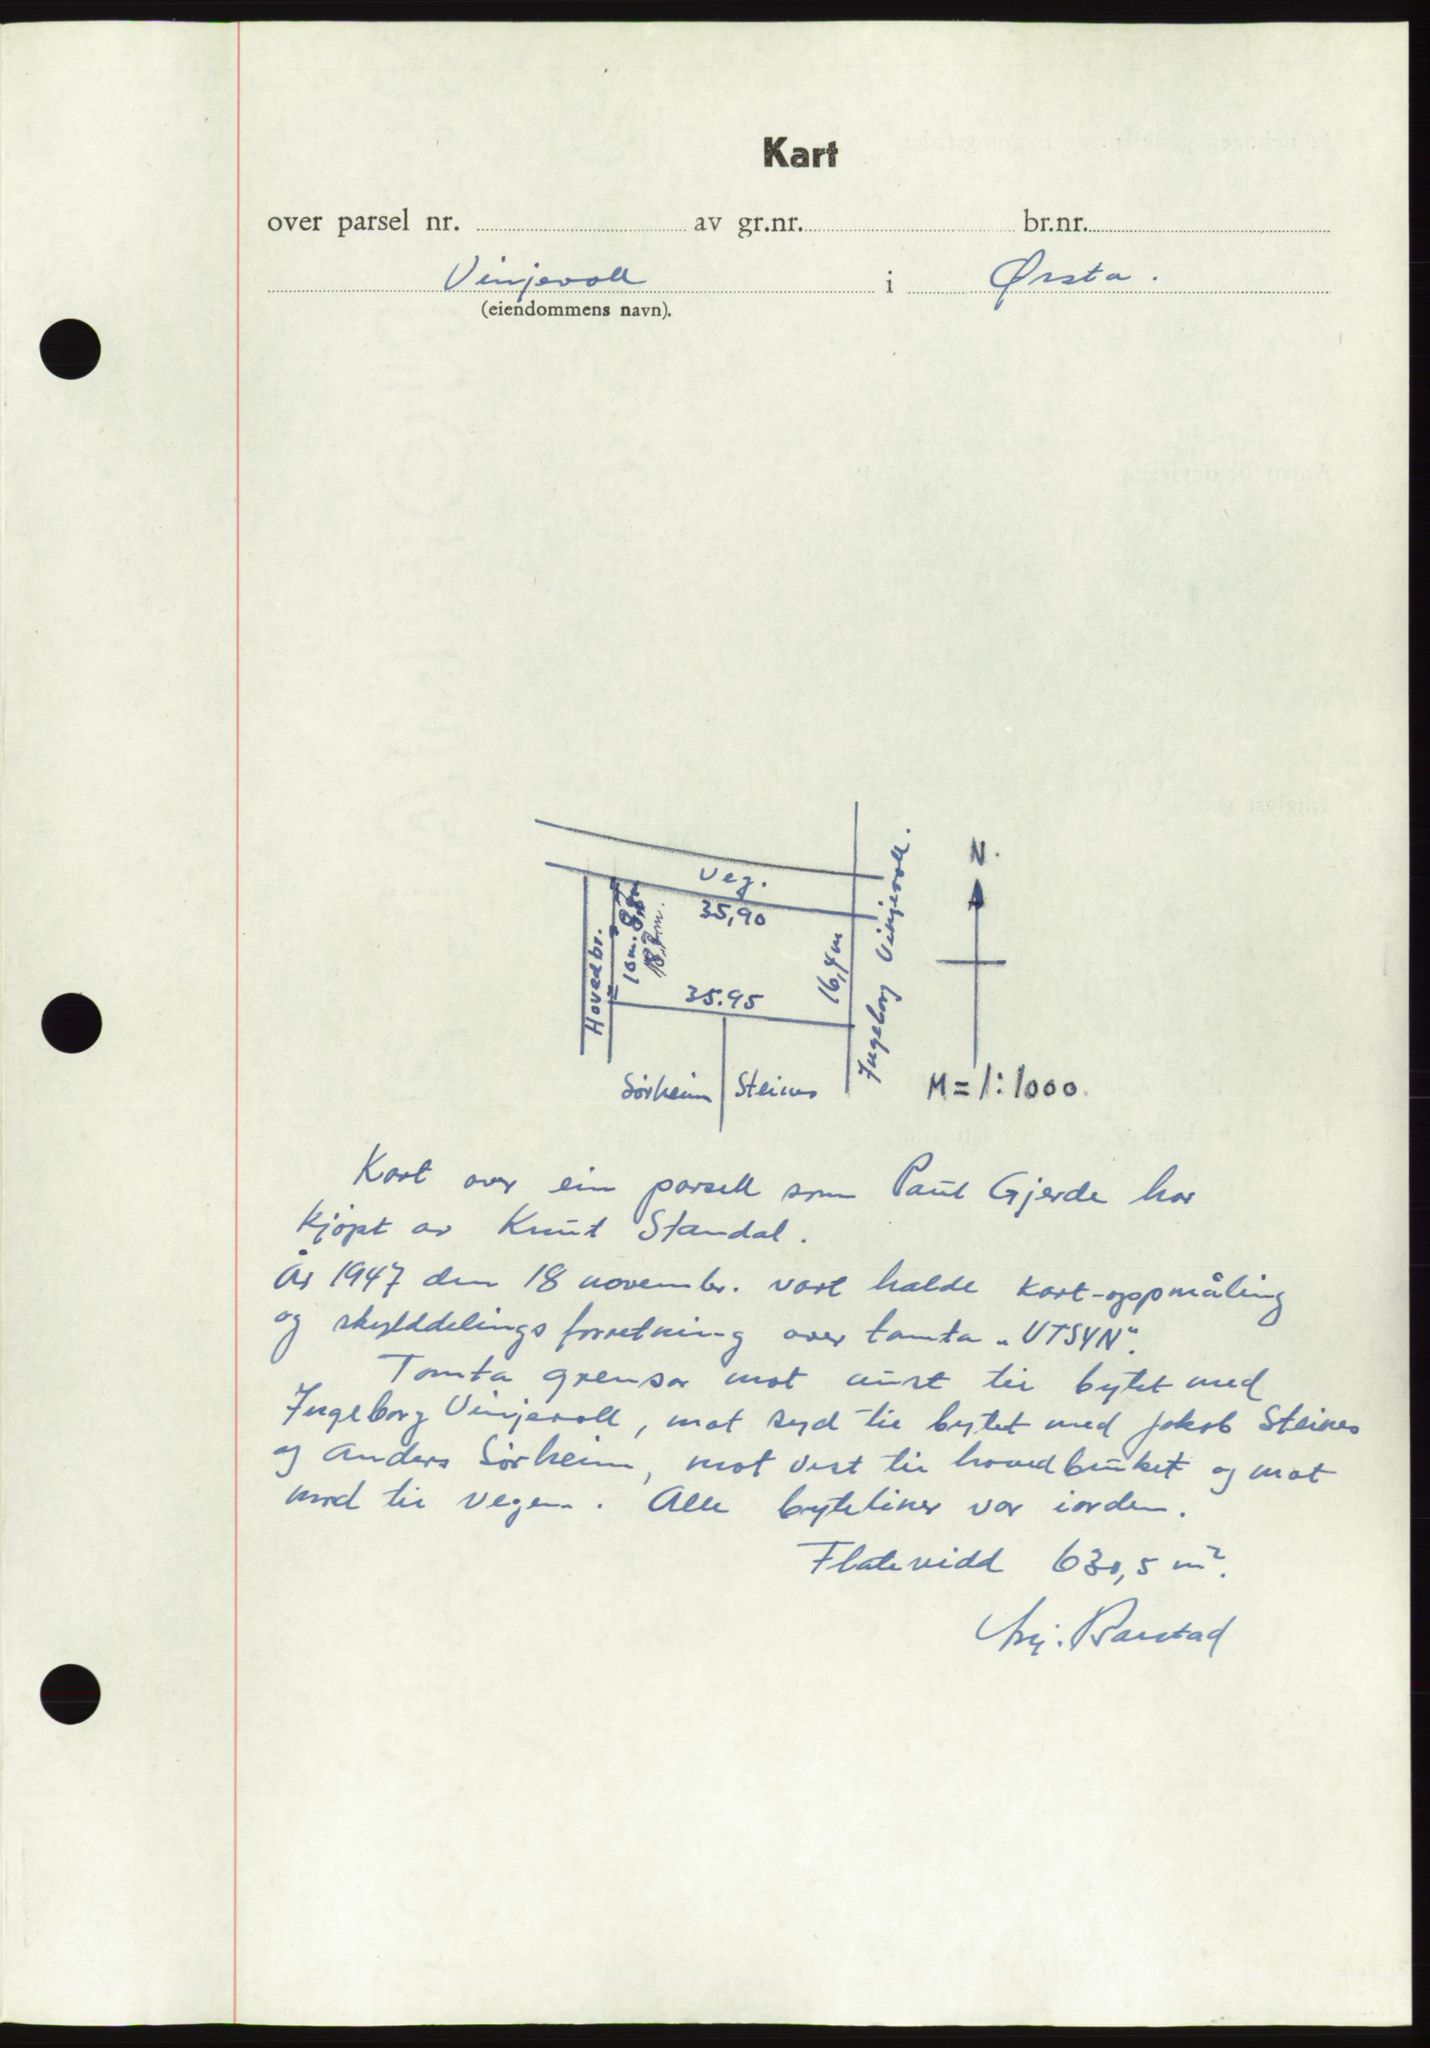 Kart
over parsel nr. av gr.nr. br.nr.
Vinjevoll i Ørsta.
(eiendommens navn).
N.
Veg.
35,90
Hovedbr.
10 m.
16,4 m
Ingeborg Vinjevoll.
35.95
Sørheim Steines
M = 1:1000.
Kart over ein parsell som Paul Gjerde har
kjøpt av Knut Standal.
År 1947 den 18 novembr. vart halde kart-oppmåling
og skylddelingsforretning over tomta "UTSYN".
Tomta grensar mot aust til bytet med
Ingeborg Vinjevoll, mot syd til bytet med Jakob Steines
og Anders Sørheim, mot vest til hovedbruket og mot
nord til vegen. Alle byteliner var iorden.
Flatevidd 630,5 m².
Barstad